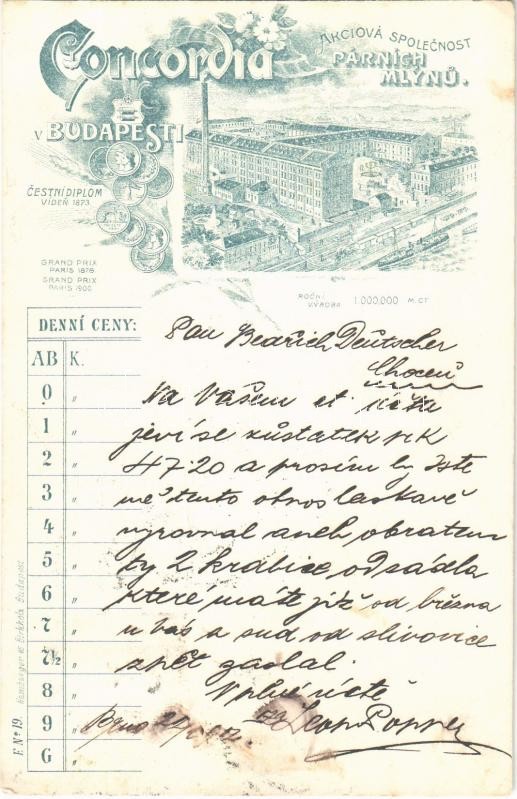 Concordia
AKCIOVÁ SPOLEČNOST
PARNÍCH
MLÝNŮ.
V BUDAPEŠTI
ČESTNÍ DIPLOM
VÍDEŇ 1873.
GRAND PRIX
PARIS 1878
GRAND PRIX
PARIS 1900
ROČNÍ VÝROBA 1.000,000 M. CT
DENNÍ CENY:
AB K.
0 "
1 "
2 "
3 "
4 "
5 "
6 "
7 "
7½ "
8 "
9 "
G "
Pan Bedřich Deutscher
Choceň
Na Vašem ct. účtu
jeví se zůstatek pr K
47·20 a prosím by jste
mě tento obnos laskavě
vyrovnal aneb obratem
ty 2 krabice od sádla
které máte již od března
u Vás a sud od slivovice
zpět zaslal.
V plné úctě
Leop. Popper
Brno
F. Nº 19. Hamburger és Birkholz Budapest